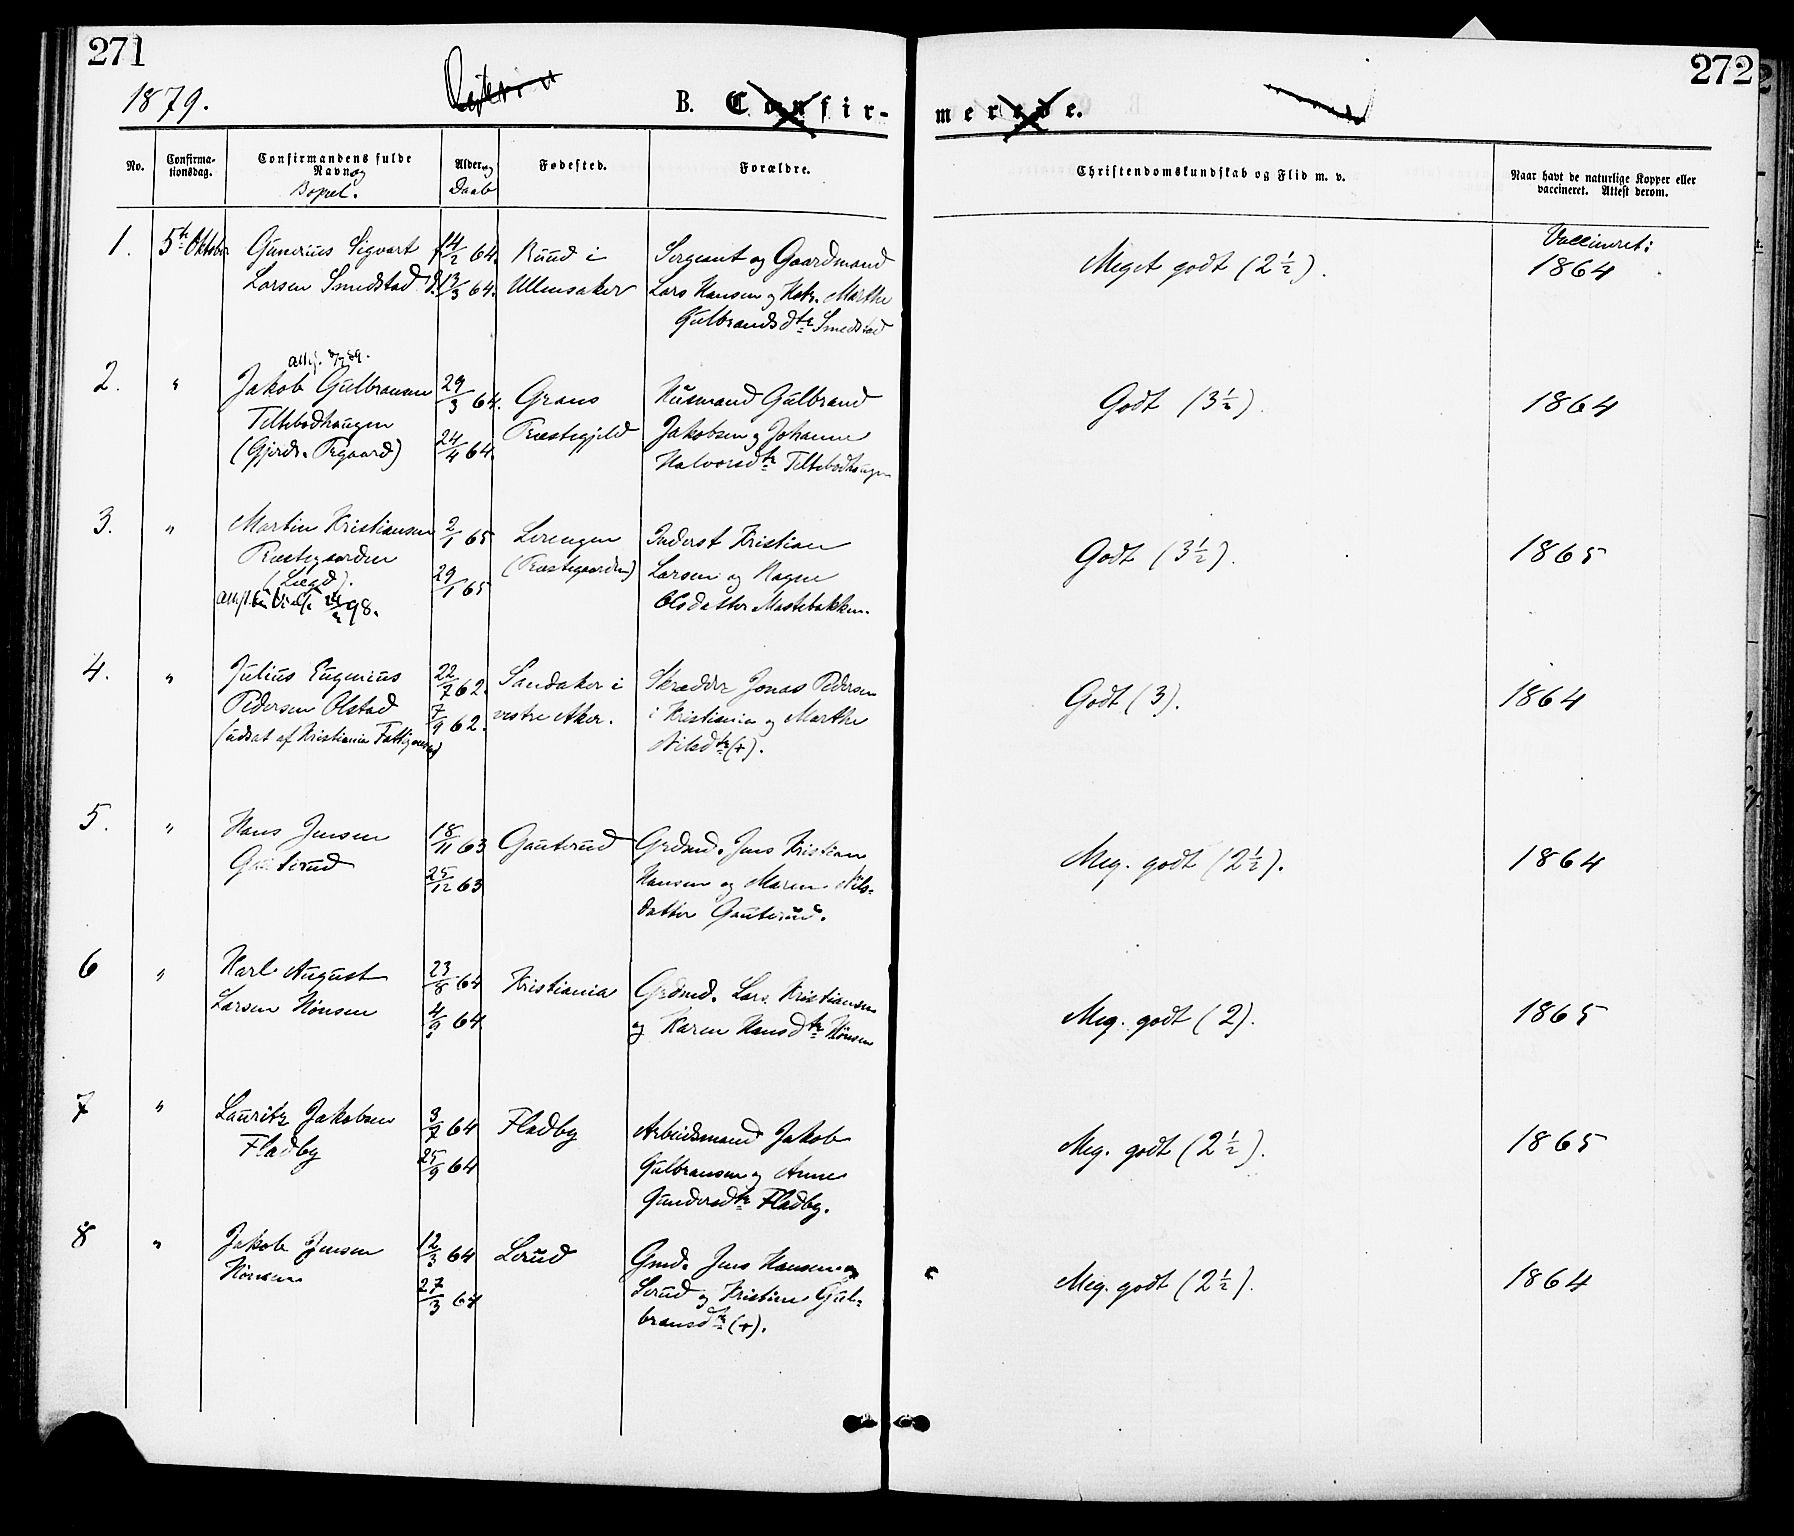 271
272
1879.
B. Confir-
merede.
No.
Confirma-
tionsdag.
Confirmandens fulde
Navn og
Bopæl.
Alder og
Daab
Fødested.
Forældre.
Christendomskundskab og Flid m. v.
Naar havt de naturlige Kopper eller
vaccineret. Attest derom.
1.
5te Oktober
Gunerius Sigvart
Larsen Smedstad
f. 14/2 64.
d. 13/3 64.
Ruud i
Ullensaker
Sergeant og Gaardmand
Lars Hansen og Kone Marthe
Gulbrandsdtr Smedstad
Meget godt (2 1/2).
Vaccineret:
1864
2.
"
Jakob Gulbransen
Teltebodhaugen
(Gjerdr. Prgaard)
29/3 64.
24/4 64.
Grans
Præstegjeld
Husmand Gulbrand
Jakobsen og Johanne
Halvorsdtr Teltebodhaugen
Godt (3 1/2).
1864
3.
"
Martin Kristiansen
Præstegaarden
(Lægd).
2/1 65
29/1 65
Lerengen
(Præstegaarden)
Inderst Kristian
Larsen og Ragne
Olsdatter Mastebakken.
Godt (3 1/2).
1865
4.
"
Julius Eugenius
Pedersen Olstad
(udsat af Kristiania Fattigvæsen)
22/7 62.
7/9 62.
Sandaker i
vestre Aker.
Skrædder Jonas Pedersen
i Kristiania og Marthe
Nilsdtr (+).
Godt (3).
1864
5.
"
Hans Jensen
Gauterud
18/11 63
25/12 63
Gauterud
Grdmd. Jens Kristian
Hansen og Maren Nils-
datter Gauterud.
Meg. godt (2 1/2).
1864
6
"
Karl August
Larsen Hønsen
23/8 64
4/9 64
Kristiania
Grdmd. Lars Kristiansen
og Karen Hansdtr Hønsen
Meg. godt (2).
1865
7
"
Lauritz Jakobsen
Fladby
3/7 64
25/9 64
Fladby
Arbeidsmand Jakob
Gulbransen og Anne
Gundersdtr Fladby.
Meg. godt (2 1/2).
1865
8
"
Jakob Jensen
Hønsen
12/3 64
27/3 64
Lerud
Gmd. Jens Hansen
Lerud og Kristine Gul-
bransdtr (+).
Meg. godt (2 1/2).
1864